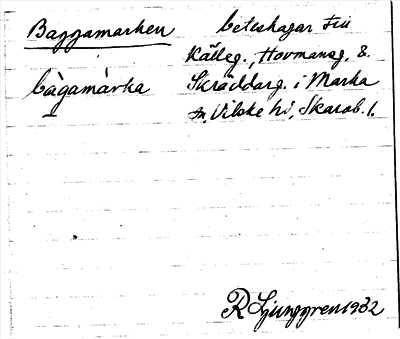 Baggamarken
bågamárka
beteshagar till
Källeg., Hovmansg. &
Skräddarg. i Marka
sn, Vilske hd, Skarab. l.
R Ljunggren 1932